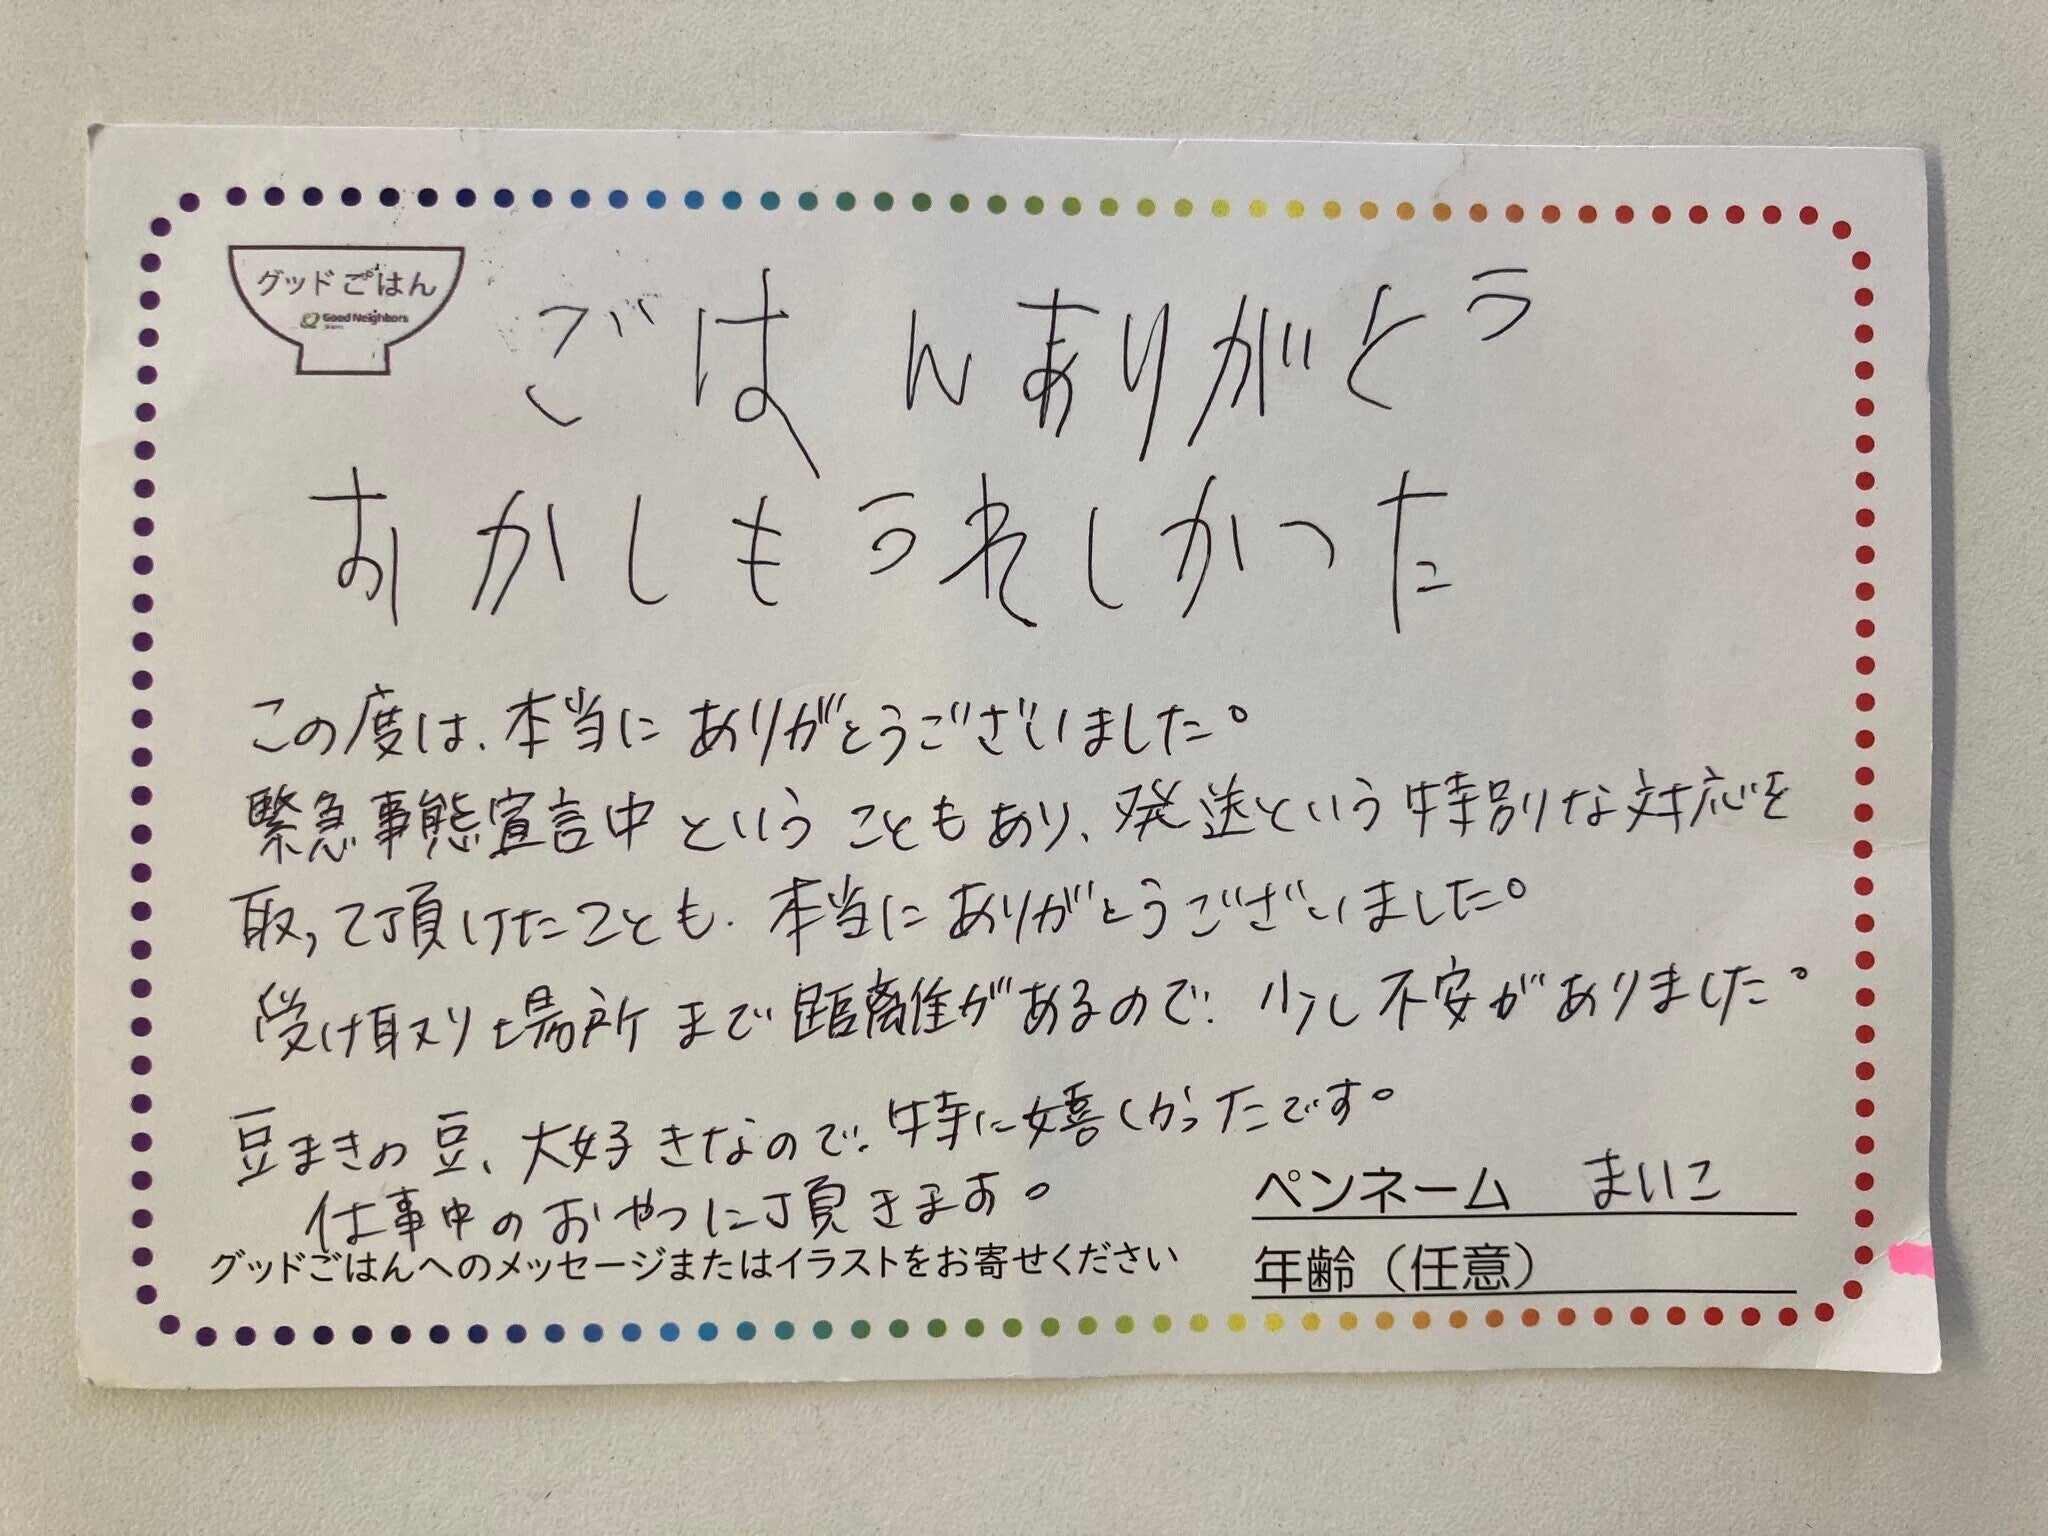 グッドごはん
Good Neighbors
ごはんありがとう
おかしもうれしかった
この度は、本当にありがとうございました。
緊急事態宣言中ということもあり、発送という特別な対応を
取って頂けたことも、本当にありがとうございました。
受け取り場所まで距離があるので、少し不安がありました。
豆まきの豆、大好きなので、特に嬉しかったです。
仕事中のおやつに頂きます。
ペンネーム まいこ
グッドごはんへのメッセージまたはイラストをお寄せください
年齢（任意）